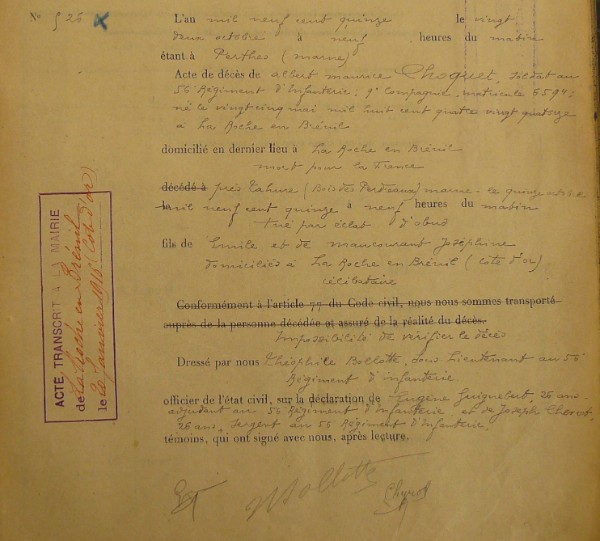 N° 526 L'an mil neuf cent quinze le vingt
deux octobre à neuf heures du matin
étant à Perthes (marne)
Acte de décès de albert maurice Choquet, soldat au
56 Régiment d'Infanterie, 9e Compagnie, matricule 6594,
né le vingt cinq mai mil huit cent quatre vingt quatorze
à La Roche en Brénil
domicilié en dernier lieu à La Roche en Brénil
mort pour la France
décédé à près Tahure (Bois des Perdreaux) marne - le quinze octobre
le mil neuf cent quinze à neuf heures du matin
Tué par éclat d'obus
fils de Emile et de maucourant Joséphine
domiciliés à La Roche en Brénil (côte d'or)
célibataire
Conformément à l'article 77 du Code civil, nous nous sommes transporté
auprès de la personne décédée et assuré de la réalité du décès.
Impossibilité de vérifier le décès
Dressé par nous Théophile Bollotte, sous Lieutenant au 56
Régiment d'infanterie
officier de l'état civil, sur la déclaration de Eugène Guignebert, 26 ans
adjudant au 56 Régiment d'Infanterie, et de Joseph
26 ans, sergent au 56 Régiment d'Infanterie,
témoins, qui ont signé avec nous, après lecture.
Bollotte
ACTE TRANSCRIT A LA MAIRIE
de La Roche en Brénil (Côte d'or)
le 20 Janvier 1916